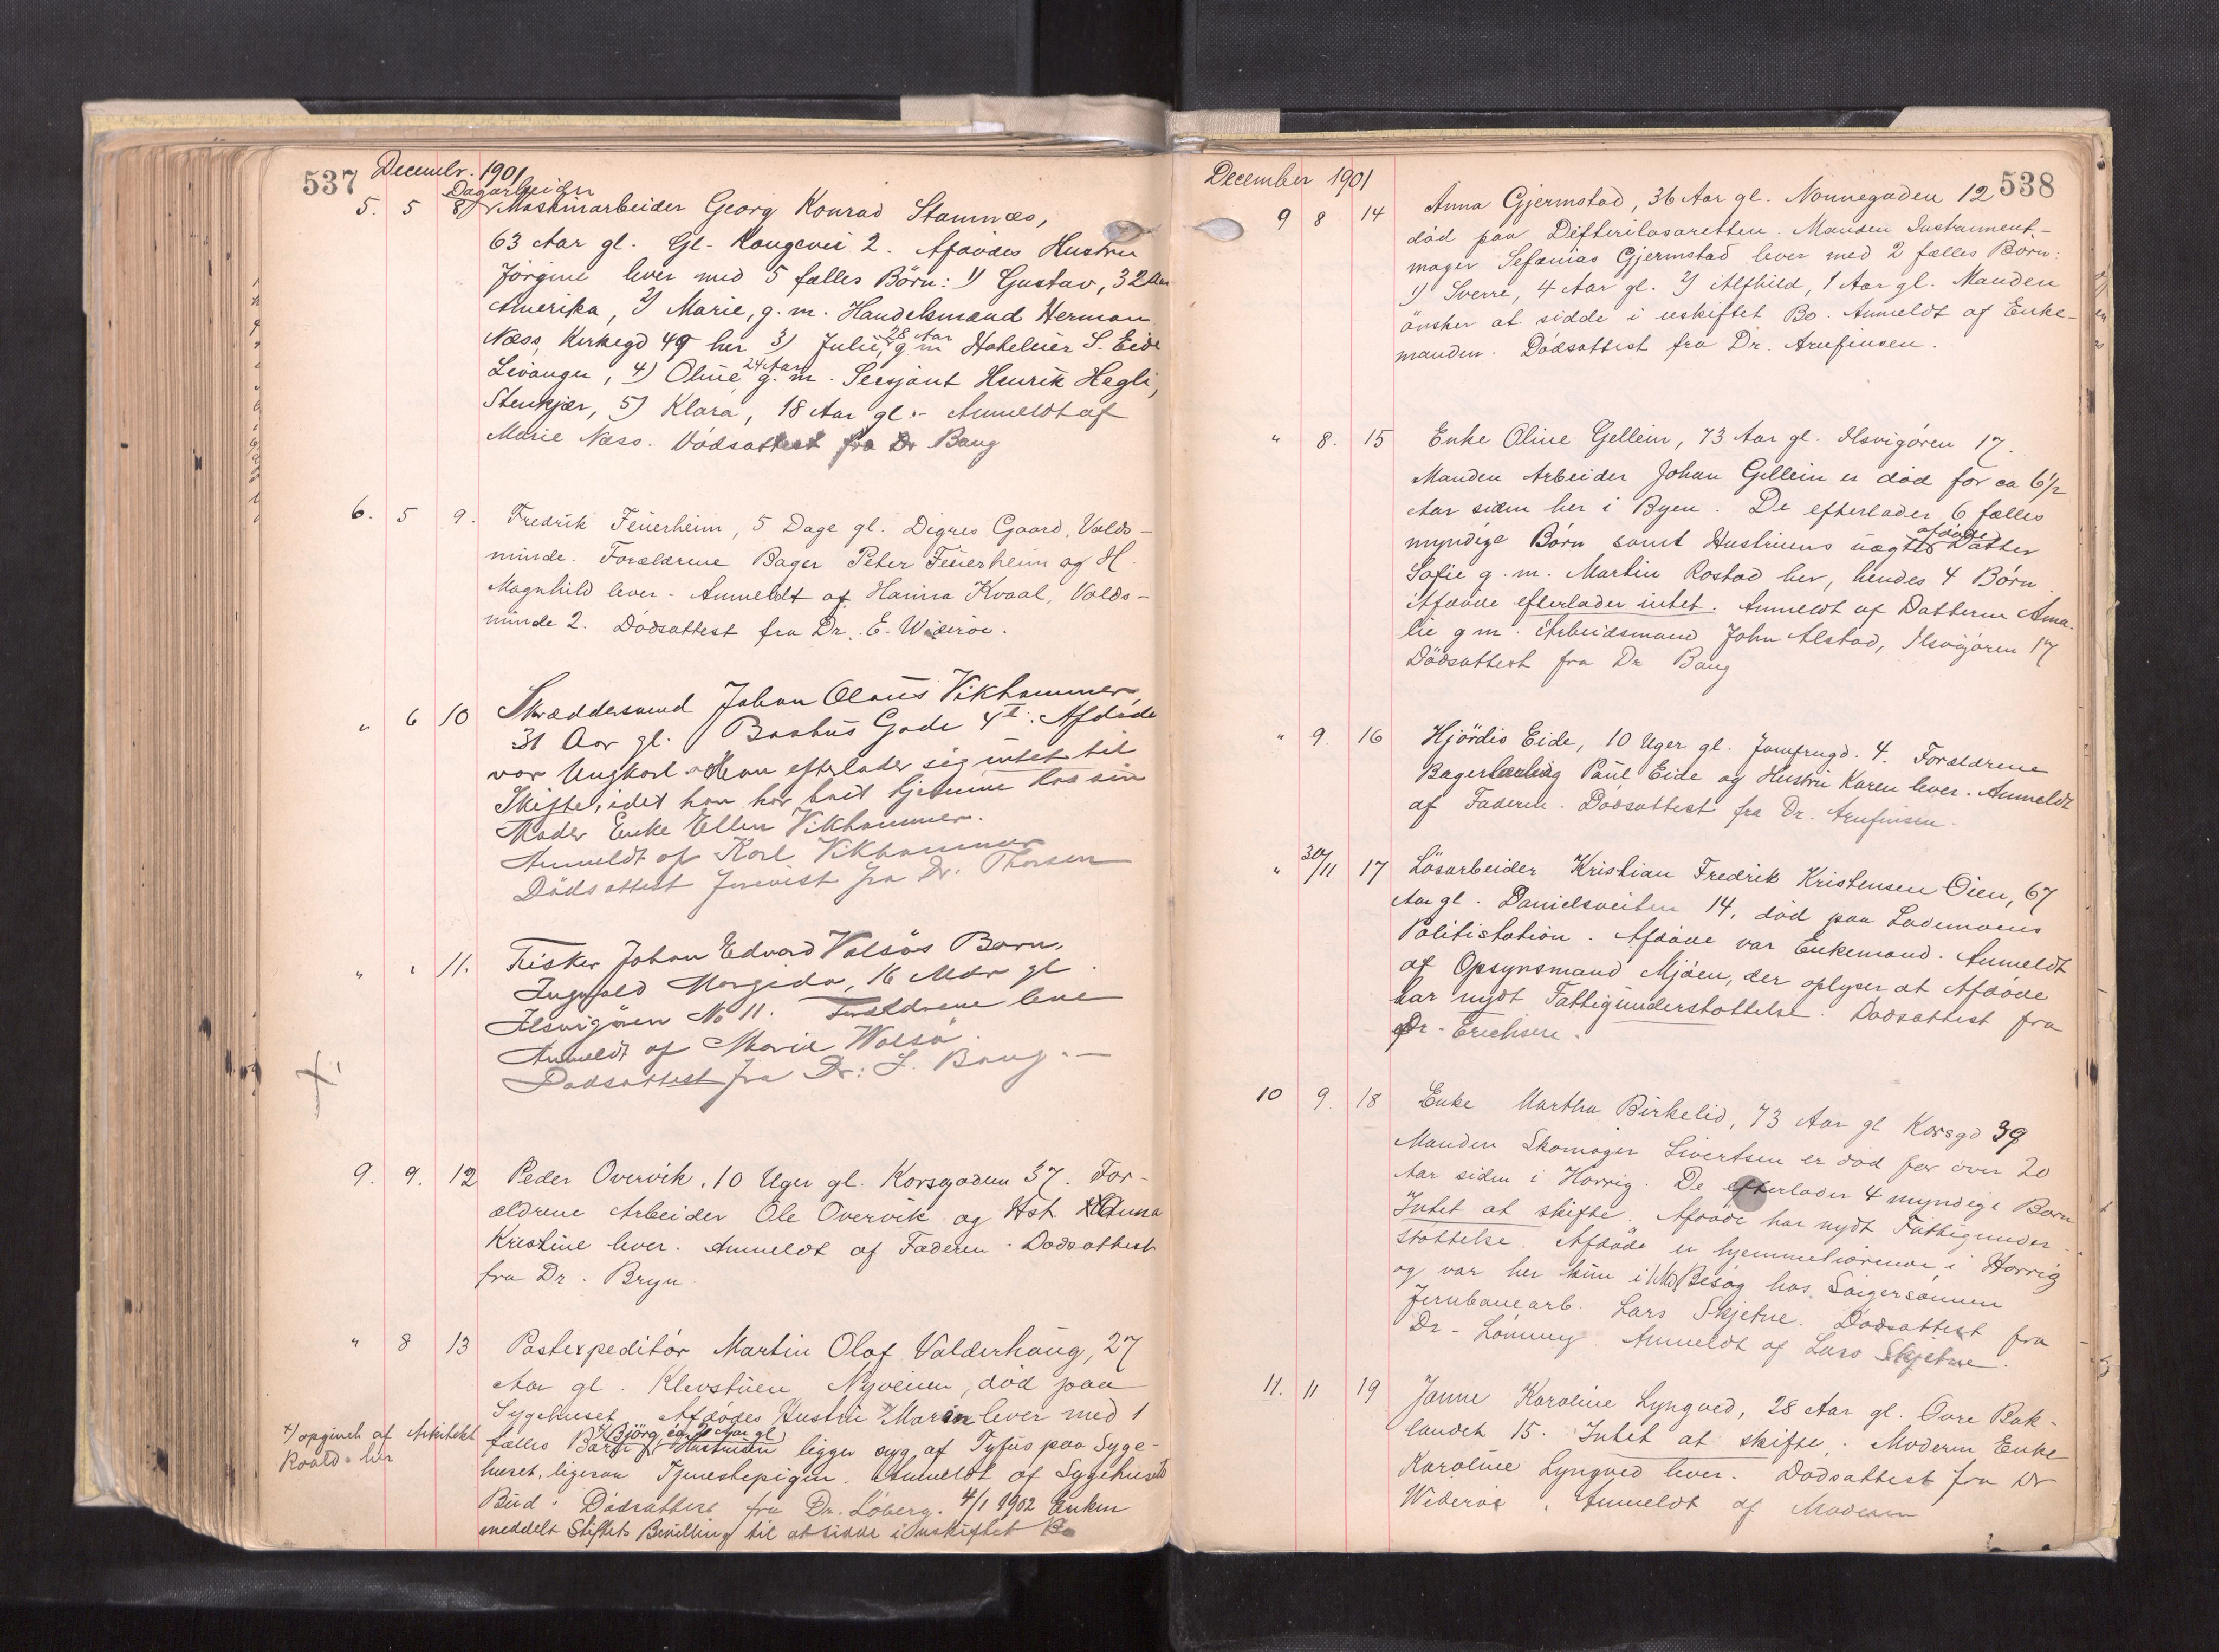 537
Decembr. 1901
Dagarbeider
5. 5 8) Maskinarbeider Georg Konrad Stamnæs,
63 Aar gl. Gl. Kongevei 2. Afdødes Hustru
Jørgine lever med 5 fælles Börn: 1) Gustav, 32 Aar
Amerika, 2) Marie, g. m. Handelsmand Herman
Næss, Kirkegd 49 her 3) Julie, 28 Aar g m Hotelier S. Eide
Levanger, 4) Oline 24 Aar g. m. Sersjant Henrik Hegli,
Stenkjær, 5) Klara, 18 Aar gl. - Anmeldt af
Marie Næss. Dödsattest fra Dr Bang
6. 5 9. Fredrik Feuerheim, 5 Dage gl. Digres Gaard, Volds-
minde. Forældrene Bager Peter Feuerheim og H.
Magnhild lever. Anmeldt af Hanna Kvaal, Volds-
minde 2. Dödsattest fra Dr. E. Wideröe.
" 6 10 Skræddersvend Johan Olaus Vikhammer,
31 Aar gl. Baahus Gade 4 I. Afdöde
var Ungkarl. Han efterlader sig intet til
Skifte, idet han har havt hjemme hos sin
Moder Enke Ellen Vikhammer.
Anmeldt af Karl Vikhammer
Dödsattest forevist fra Dr. Thorsen
" " 11. Fisker Johan Edvard Valsös Barn,
Ingvald Margido, 16 Mdr gl.
Ilsvigören No 11. Forældrene leve
Anmeldt af Marie Walsö.
Dødsattest fra Dr. J. Bang. -
9. 9. 12 Peder Overvik, 10 Uger gl. Korsgaden 37. For-
ældrene Arbeider Ole Overvik og Hst. Anna
Kristine lever. Anmeldt af Faderen. Dødsattest
fra Dr. Bryn.
" 8 13 Postexpeditör Martin Olaf Valderhaug, 27
Aar gl. Klevstuen Nyveien, död paa
Sygehuset. Afdödes Hustru Marin lever med 1
x) Björg, ca. 2 Aar gl
fælles Barn. Hustruen ligger syg af Tyfus paa Syge-
huset, ligesaa Tjenestepigen. Anmeldt af Sygehusets
Bud. Dödsattest fra Dr. Löberg. 4/1 1902 Enken
meddelt Stiftets Bevilling til at sidde i uskiftet Bo
x) opgivet af Arkitekt
Roald her
December 1901
538
9 8 14 Anna Gjermstad, 36 Aar gl. Nonnegaden 12
död paa Difterilasarettet. Manden Instrument-
mager Sefanias Gjermstad lever med 2 fælles Börn:
1) Sverre, 4 Aar gl. 2) Alfhild, 1 Aar gl. Manden
önsker at sidde i uskiftet Bo. Anmeldt af Enke-
manden. Dödsattest fra Dr. Arnfinsen.
" 8. 15 Enke Oline Gellein, 73 Aar gl. Ilsvigören 17.
Manden Arbeider Johan Gellein er död for ca 6 1/2
Aar siden her i Byen. De efterlader 6 fælles
myndige Börn samt Hustruens uægte afdöde Datter
Sofie g. m. Martin Rostad her, hendes 4 Börn.
Afdöde efterlader intet. Anmeldt af Datteren Ama-
lie g m. Arbeidsmand John Alstad, Ilsvigören 17
Dödsattest fra Dr Bang
" 9. 16 Hjördis Eide, 10 Uger gl. Jomfrugd. 4. Forældrene
Bagerlærling Paul Eide og Hustru Karen lever. Anmeldt
af Faderen. Dödsattest fra Dr. Arnfinsen.
" 30/11 17 Lösarbeider Kristian Fredrik Kristensen Öien, 67
Aar gl. Danielsveiten 14, död paa Lademoens
Politistation. Afdöde var Enkemand. Anmeldt
af Opsynsmand Mjöen, der oplyser at Afdöde
har nydt Fattigunderstöttelse. Dödsattest fra
Dr. Erichsen.
10 9. 18 Enke Martha Birkelid, 73 Aar gl Korsgd 39
Manden Skomager Sivertsen er död for over 20
Aar siden i Horrig. De efterlader 4 myndige Börn
Intet at skifte. Afdöde har nydt Fattigunder-
stöttelse. Afdöde er hjemmehörende i Horrig
og var her kun i Besög hos Svigersönnen
Jernbanearb. Lars Skjetne. Dödsattest fra
Dr. Lönning. Anmeldt af Lars Skjetne.
11. 11 19 Janne Karoline Lyngved, 28 Aar gl. Övre Bak-
landet 15. Intet at skifte. Moderen Enke
Karoline Lyngved lever. Dödsattest fra Dr
Wideröe. Anmeldt af Moderen